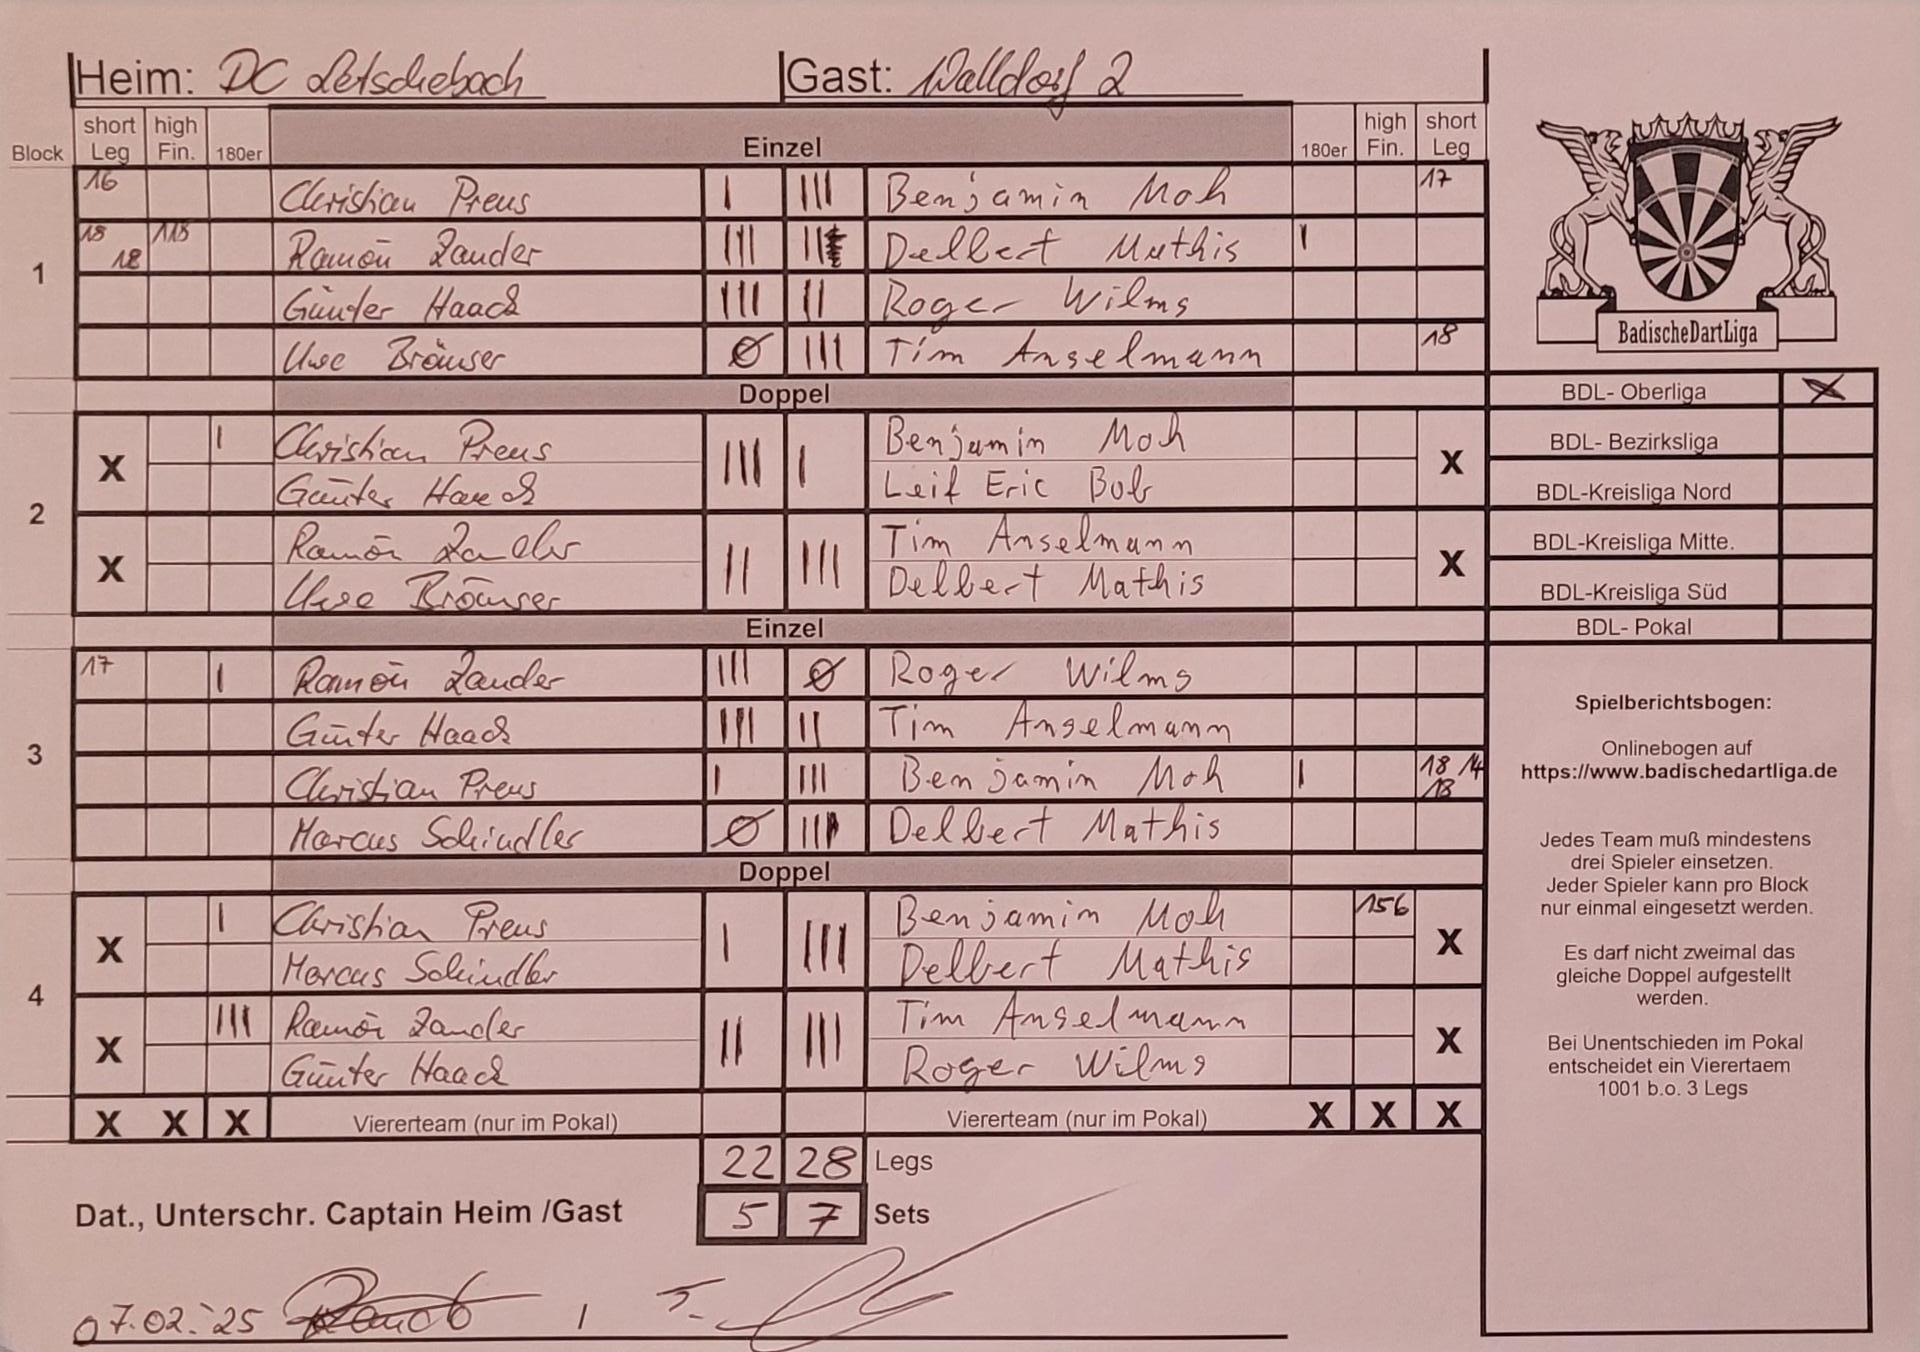 Heim: DC Letschebach Gast: Walldorf 2
Block short Leg high Fin. 180er Einzel 180er high Fin. short Leg
1
16 Christian Preus I III Benjamin Moh 17
18 18 118 Ramón Zander III II Delbert Mathis I
Günter Haack III II Roger Wilms
Uwe Brömser Ø III Tim Anselmann 18
Doppel
2
X I Christian Preus III I Benjamin Moh X
Günter Haack Leif Eric Bob
X Ramón Zander II III Tim Anselmann X
Uwe Brömser Delbert Mathis
Einzel
3
17 I Ramón Zander III Ø Roger Wilms
Günter Haack III II Tim Anselmann
Christian Preus I III Benjamin Moh I 18 14 18
Marcus Schindler Ø III Delbert Mathis
Doppel
4
X I Christian Preus I III Benjamin Moh 156 X
Marcus Schindler Delbert Mathis
X III Ramón Zander II III Tim Anselmann X
Günter Haack Roger Wilms
X X X Viererteam (nur im Pokal) Viererteam (nur im Pokal) X X X
22 28 Legs
Dat., Unterschr. Captain Heim /Gast 5 7 Sets
07.02.'25 /
BadischeDartLiga
BDL- Oberliga X
BDL- Bezirksliga
BDL-Kreisliga Nord
BDL-Kreisliga Mitte.
BDL-Kreisliga Süd
BDL- Pokal
Spielberichtsbogen:
Onlinebogen auf
https://www.badischedartliga.de
Jedes Team muß mindestens
drei Spieler einsetzen.
Jeder Spieler kann pro Block
nur einmal eingesetzt werden.
Es darf nicht zweimal das
gleiche Doppel aufgestellt
werden.
Bei Unentschieden im Pokal
entscheidet ein Vierertaem
1001 b.o. 3 Legs